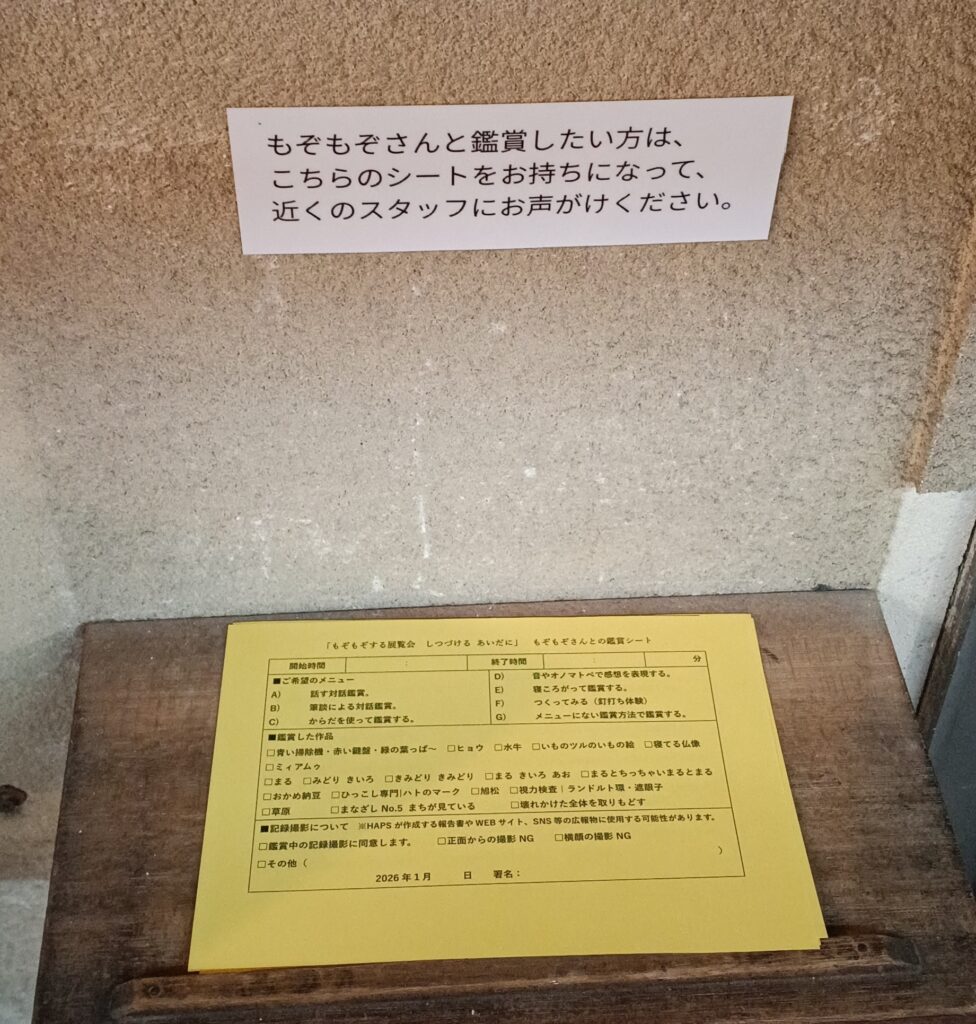 もぞもぞさんと鑑賞したい方は、
こちらのシートをお持ちになって、
近くのスタッフにお声がけください。
「もぞもぞする展覧会 しつづける あいだに」 もぞもぞさんとの鑑賞シート
開始時間 : 終了時間 : 分
■ご希望のメニュー
A) 話す対話鑑賞。
B) 筆談による対話鑑賞。
C) からだを使って鑑賞する。
D) 音やオノマトペで感想を表現する。
E) 寝ころがって鑑賞する。
F) つくってみる（釘打ち体験）
G) メニューにない鑑賞方法で鑑賞する。
■鑑賞した作品
□青い掃除機・赤い鍵盤・緑の葉っぱ～ □ヒョウ □水牛 □いものツルのいもの絵 □寝てる仏像
□ミィアムゥ
□まる □みどり きいろ □きみどり きみどり □まる きいろ あお □まるとちっちゃいまるとまる
□おかめ納豆 □ひっこし専門|ハトのマーク □旭松 □視力検査｜ランドルト環・遮眼子
□草原 □まなざし No.5 まちが見ている □壊れかけた全体を取りもどす
■記録撮影について ※HAPS が作成する報告書や WEB サイト、SNS 等の広報物に使用する可能性があります。
□鑑賞中の記録撮影に同意します。 □正面からの撮影 NG □横顔の撮影 NG
□その他（ ）
2026 年 1 月 日 署名：